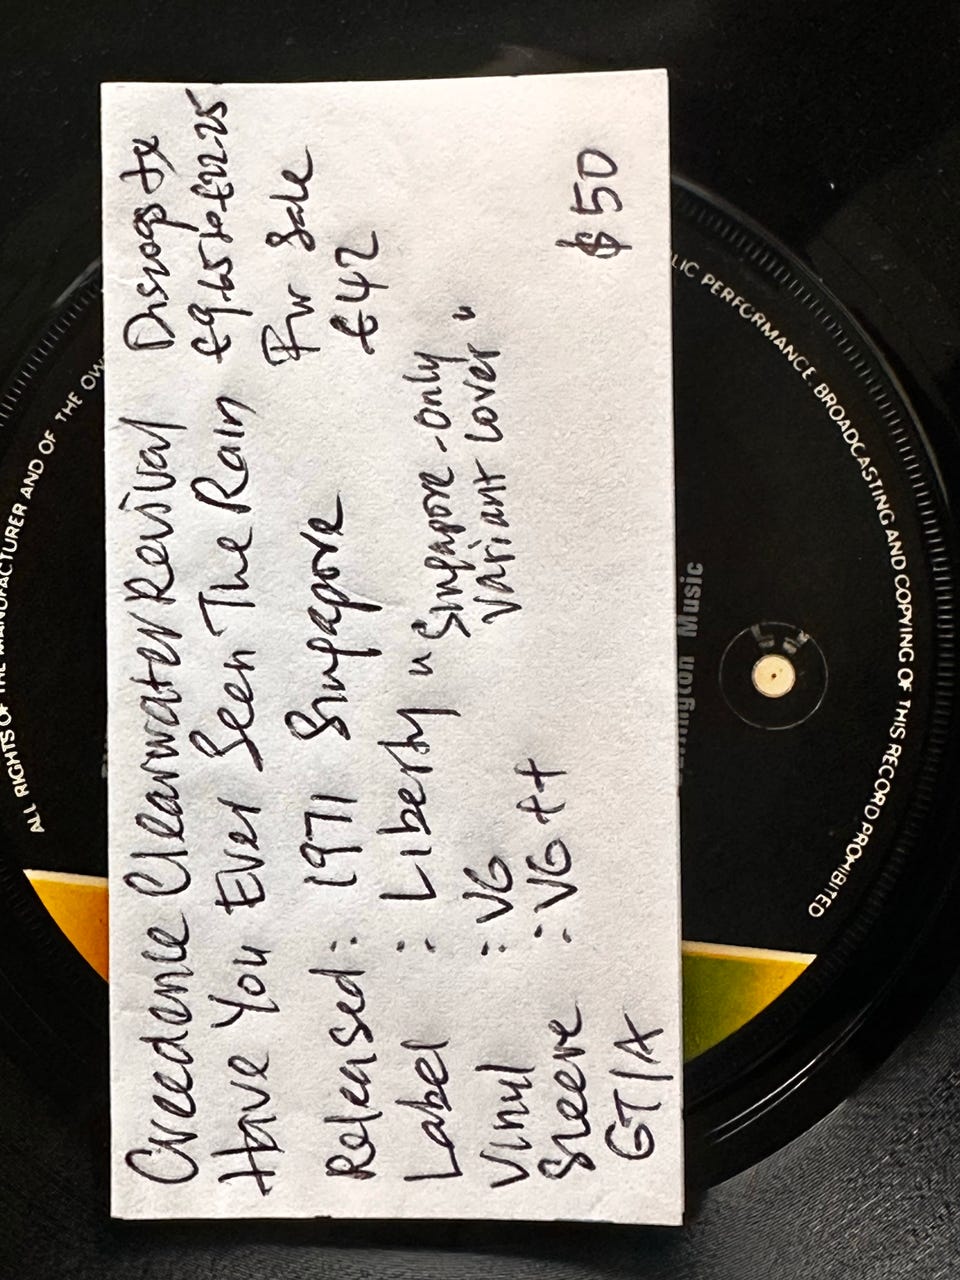 Creedence Clearwater Revival Discogs tx
Have You Ever Seen The Rain €9.65 to €22.25
For Sale
Released: 1971 Singapore €42
Label : Liberty "Singapore-Only
Variant Cover"
Vinyl : VG
Sleeve : VG++
GT/A $50
ALL RIGHTS OF THE MANUFACTURER AND OF THE OW
LIC PERFORMANCE BROADCASTING AND COPYING OF THIS RECORD PROHIBITED
Music